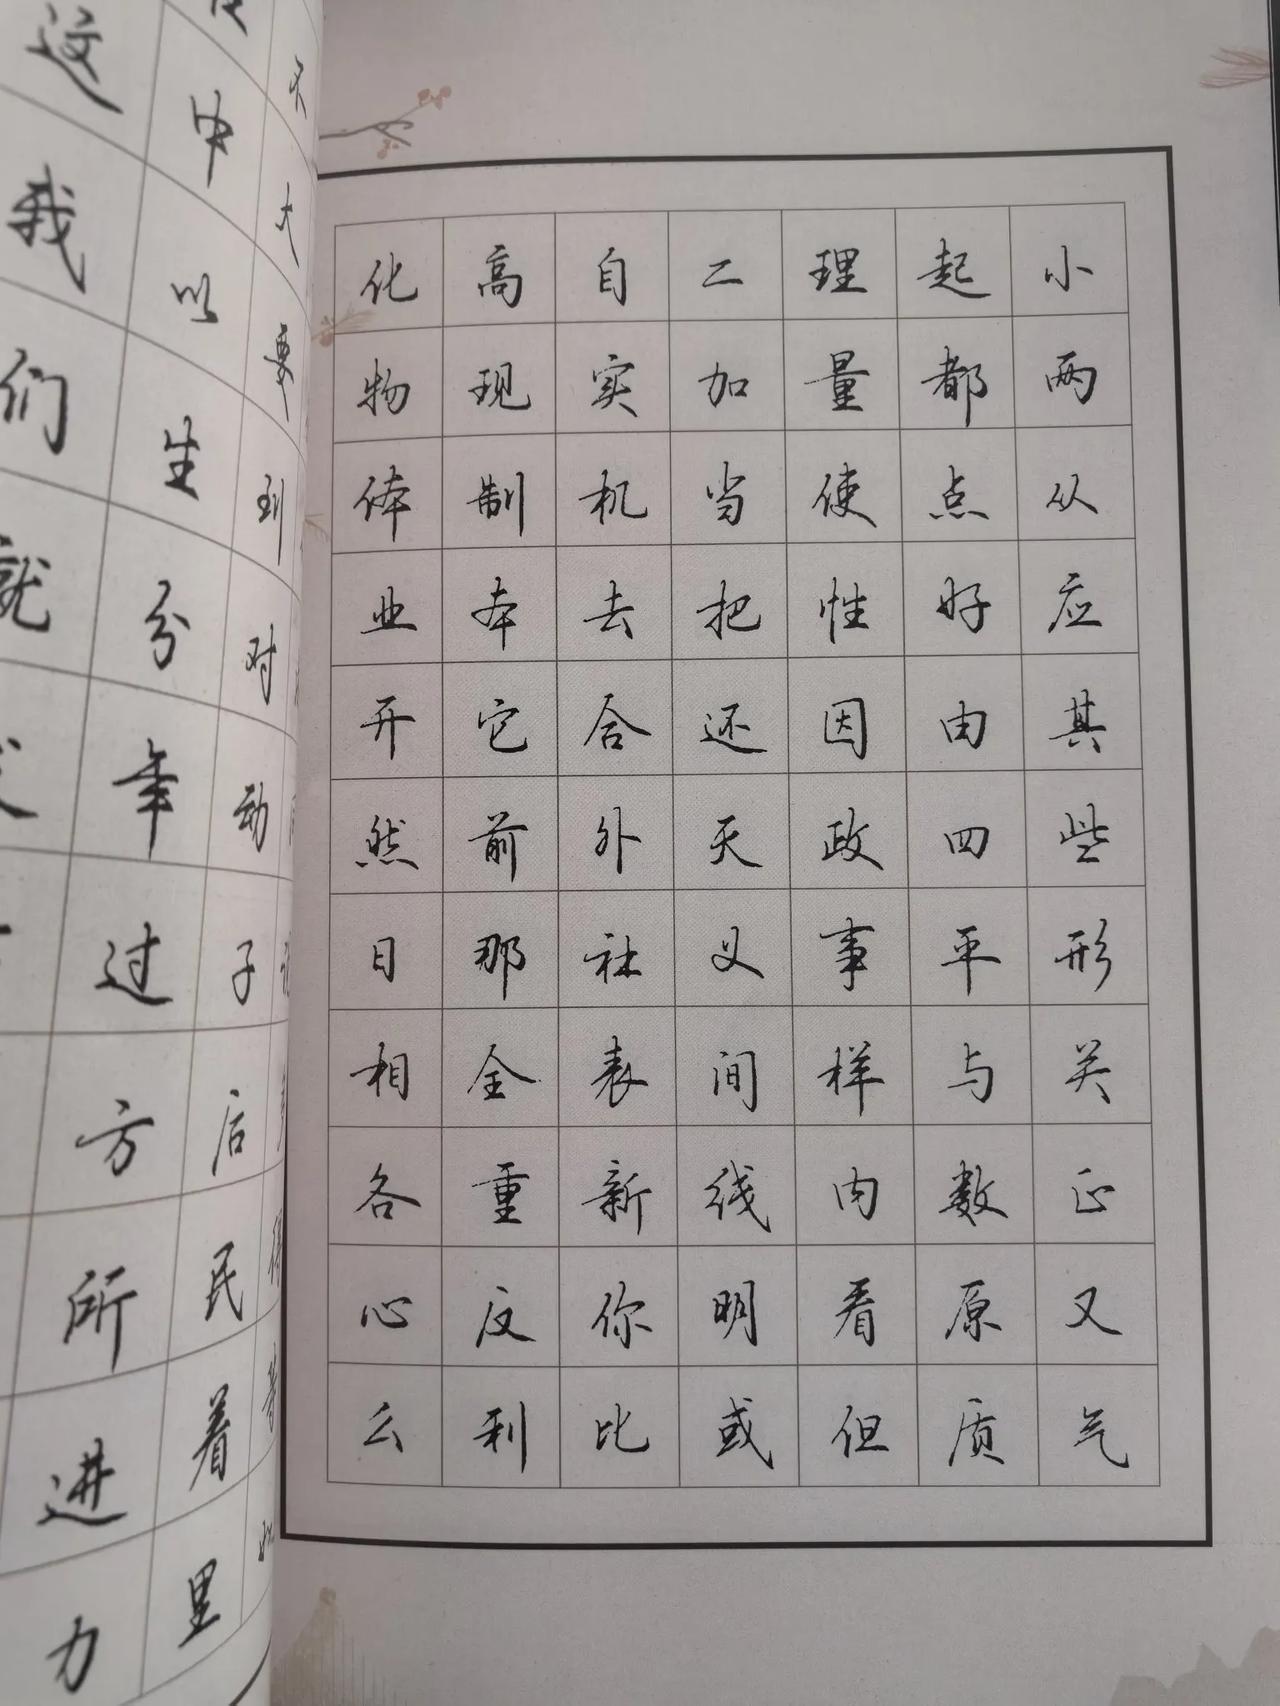 不
这中大
我以要
们生到
就分对
年动
过子
方后
所民
进着
力里
化高自二理起小
物现实加量都两
体制机当使点从
业本去把性好应
开它合还因由其
然前外天政四些
日那社义事平形
相全表间样与关
各重新线内数正
心反你明看原又
么利比或但质气